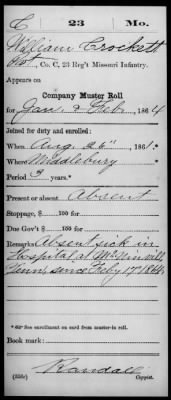 C 23 Mo.
William Crockett
Pvt., Co. C, 23 Reg't Missouri Infantry.
Appears on
Company Muster Roll
for Jan. & Feb., 1864
Joined for duty and enrolled:
When Aug. 26", 1861.*
Where Middlebury
Period 3 years.*
Present or absent Absent
Stoppage, $ 100 for
Due Gov't $ 100 for
Remarks: Absent sick in
Hospital at McMinnvill
Tenn, since Feby 17" 1864.
* See enrollment on card from muster-in roll.
Book mark:
Randall
(358c) Copyist.